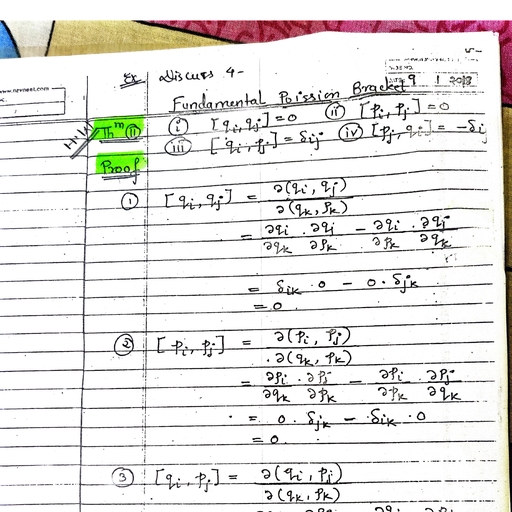 Ex Discuss 4-
9 1 2013
Fundamental Poission Bracket
Thm (11) (i) [qi, qj] = 0 (ii) [pi, pj] = 0
(iii) [qi, pj] = δij (iv) [pj, qi] = -δij
Proof
(1) [qi, qj] = ∂(qi, qj) / ∂(qk, pk)
= ∂qi/∂qk · ∂qj/∂pk - ∂qi/∂pk · ∂qj/∂qk
= δik · 0 - 0 · δjk
= 0
(2) [pi, pj] = ∂(pi, pj) / ∂(qk, pk)
= ∂pi/∂qk · ∂pj/∂pk - ∂pi/∂pk · ∂pj/∂qk
= 0 · δjk - δik · 0
= 0.
(3) [qi, pj] = ∂(qi, pj) / ∂(qk, pk)